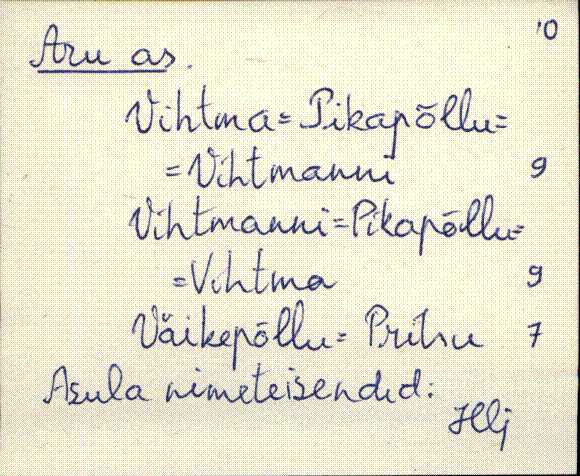 10
Aru as.
Vihtma = Pikapõllu =
= Vihtmanni 9
Vihtmanni = Pikapõllu =
= Vihtma 9
Väikepõllu = Pritsu 7
Asula nimeteisendid: